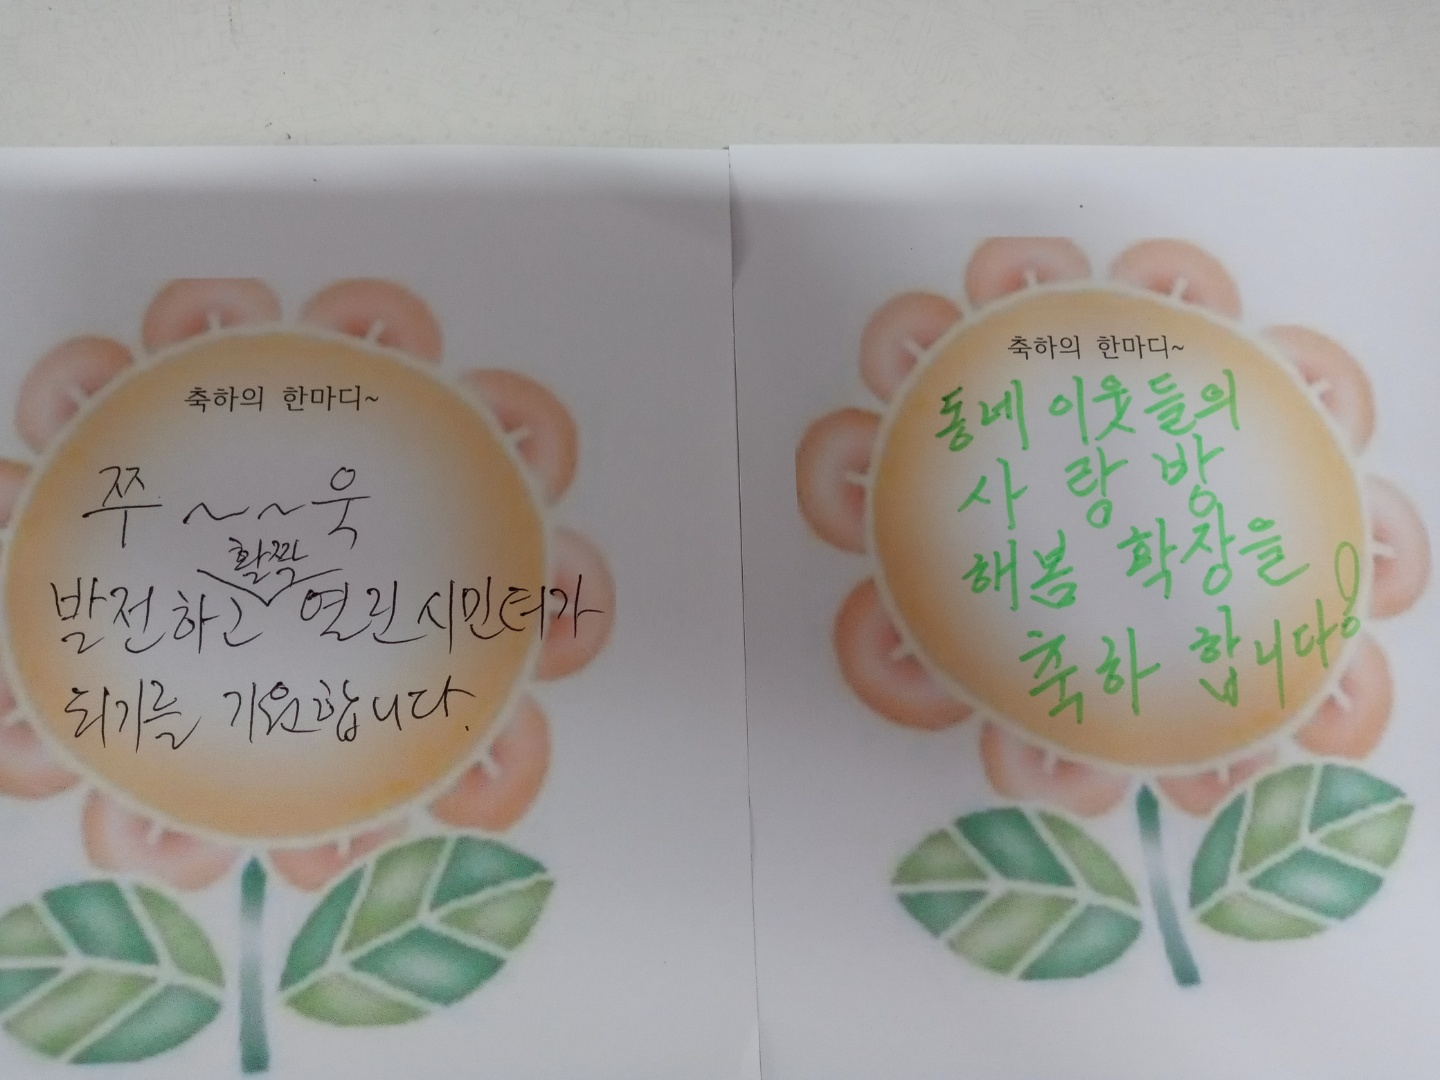 축하의 한마디~
쭈~~욱
활짝
발전하고 열린 시민터가
되기를 기원합니다.
축하의 한마디~
동네 이웃들의
사랑방
해봄 확장을
축하합니다!